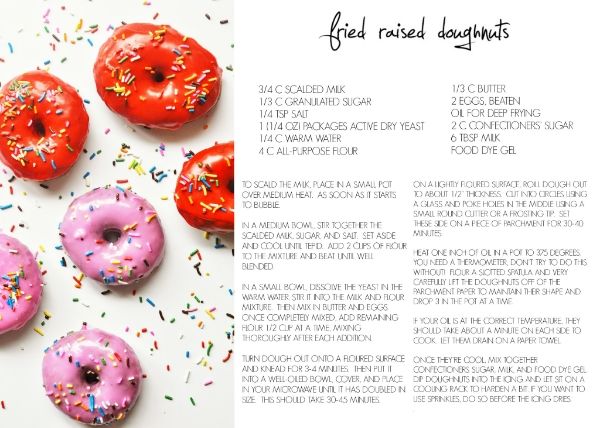 fried raised doughnuts
3/4 C SCALDED MILK
1/3 C GRANULATED SUGAR
1/4 TSP SALT
1 (1/4 OZ) PACKAGES ACTIVE DRY YEAST
1/4 C WARM WATER
4 C ALL-PURPOSE FLOUR
1/3 C BUTTER
2 EGGS, BEATEN
OIL FOR DEEP FRYING
2 C CONFECTIONERS' SUGAR
6 TBSP MILK
FOOD DYE GEL
TO SCALD THE MILK, PLACE IN A SMALL POT
OVER MEDIUM HEAT. AS SOON AS IT STARTS
TO BUBBLE.
IN A MEDIUM BOWL, STIR TOGETHER THE
SCALDED MILK, SUGAR, AND SALT. SET ASIDE
AND COOL UNTIL TEPID. ADD 2 CUPS OF FLOUR
TO THE MIXTURE AND BEAT UNTIL WELL
BLENDED
IN A SMALL BOWL, DISSOLVE THE YEAST IN THE
WARM WATER. STIR IT INTO THE MILK AND FLOUR
MIXTURE. THEN MIX IN BUTTER AND EGGS.
ONCE COMPLETELY MIXED, ADD REMAINING
FLOUR 1/2 CUP AT A TIME, MIXING
THOROUGHLY AFTER EACH ADDITION.
TURN DOUGH OUT ONTO A FLOURED SURFACE
AND KNEAD FOR 3-4 MINUTES. THEN PUT IT
INTO A WELL-OILED BOWL, COVER, AND PLACE
IN YOUR MICROWAVE UNTIL IT HAS DOUBLED IN
SIZE. THIS SHOULD TAKE 30-45 MINUTES.
ON A LIGHTLY FLOURED SURFACE, ROLL DOUGH OUT
TO ABOUT 1/2" THICKNESS. CUT INTO CIRCLES USING
A GLASS AND POKE HOLES IN THE MIDDLE USING A
SMALL ROUND CUTTER OR A FROSTING TIP. SET
THESE SIDE ON A PIECE OF PARCHMENT FOR 30-40
MINUTES.
HEAT ONE INCH OF OIL IN A POT TO 375 DEGREES.
YOU NEED A THERMOMETER, DON'T TRY TO DO THIS
WITHOUT! FLOUR A SLOTTED SPATULA AND VERY
CAREFULLY LIFT THE DOUGHNUTS OFF OF THE
PARCHMENT PAPER TO MAINTAIN THEIR SHAPE AND
DROP 3 IN THE POT AT A TIME.
IF YOUR OIL IS AT THE CORRECT TEMPERATURE, THEY
SHOULD TAKE ABOUT A MINUTE ON EACH SIDE TO
COOK. LET THEM DRAIN ON A PAPER TOWEL.
ONCE THEY'RE COOL, MIX TOGETHER
CONFECTIONERS SUGAR, MILK, AND FOOD DYE GEL.
DIP DOUGHNUTS INTO THE ICING AND LET SIT ON A
COOLING RACK TO HARDEN A BIT. IF YOU WANT TO
USE SPRINKLES, DO SO BEFORE THE ICING DRIES.